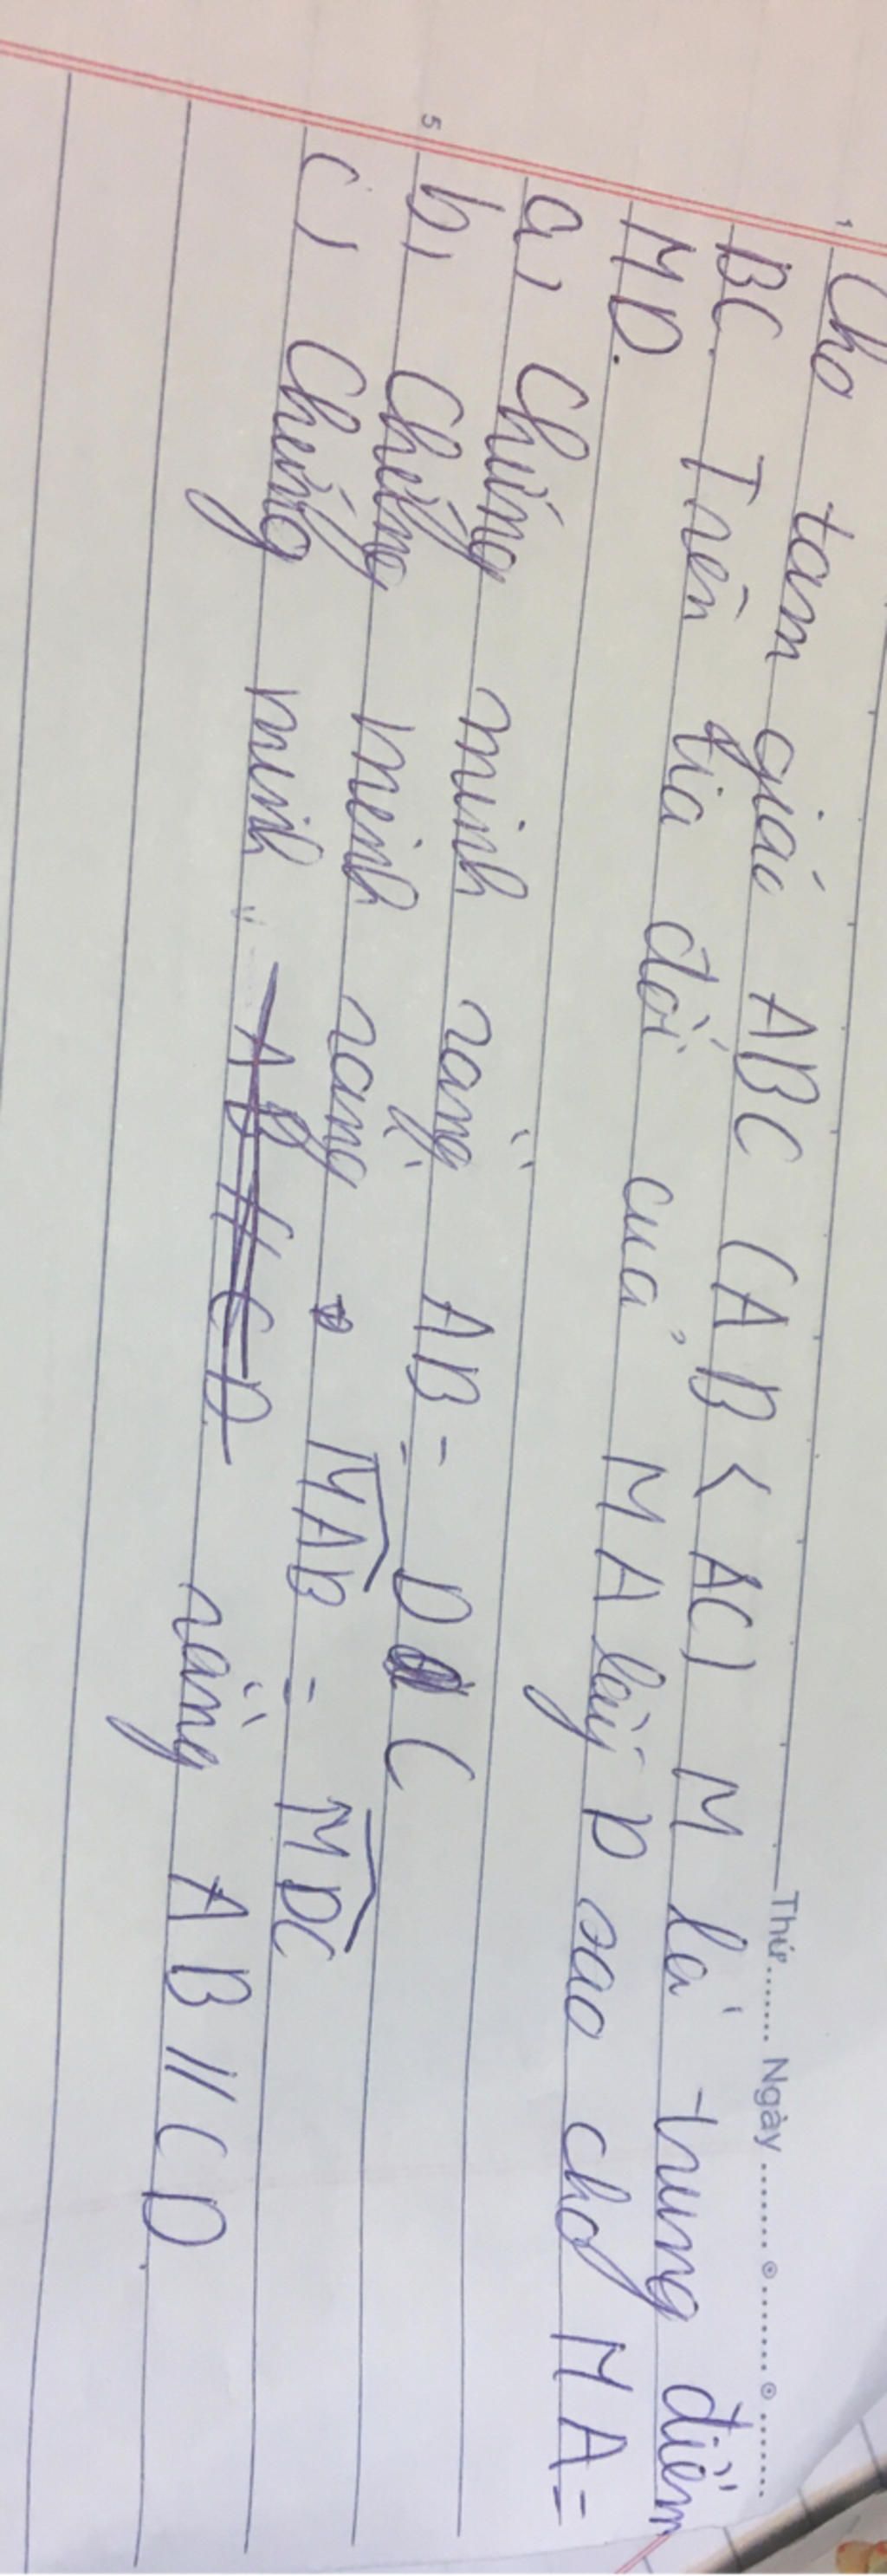 Thứ........ Ngày ........ ........ ........
Cho tam giác ABC (AB < AC) M là trung điểm
BC. Trên tia đối của MA lấy D sao cho MA =
MD.
a, Chứng minh rằng AB = DC
b, Chứng minh rằng MAB = MDC
c, Chứng minh AB // CD rằng AB // CD.